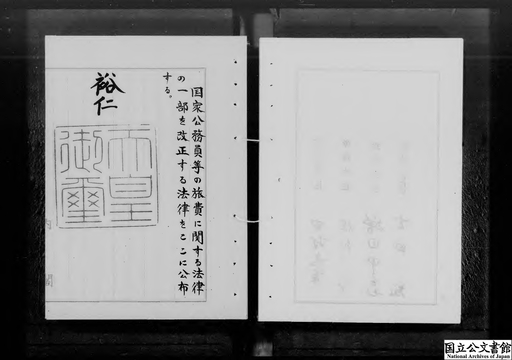 国家公務員等の旅費に関する法律
の一部を改正する法律をここに公布
する。
裕仁
天皇
御璽
内閣
国立公文書館
National Archives of Japan